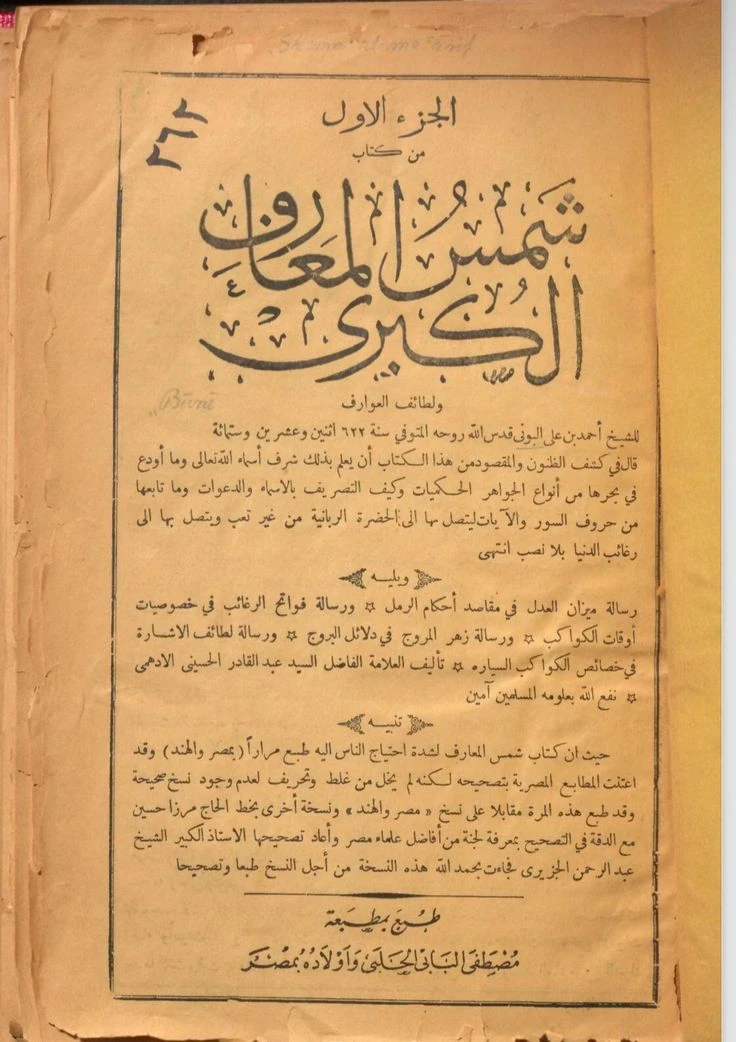 Shams al-maʿarif
٣٦٢
الجزء الاول
من كتاب
شَمسُ المَعَارِف
الكُبرى
ولطائف العوارف
Būnī
للشيخ أحمد بن على البونى قدس الله روحه المتوفي سنة ٦٢٢ اثنين وعشرين وستمائة
قال في كشف الظنون والمقصود من هذا الكتاب أن يعلم بذلك شرف أسماء الله تعالى وما أودع
في بحرها من أنواع الجواهر الحكميات وكيف التصريف بالاسماء والدعوات وما تابعها
من حروف السور والآيات ليتصل بها الى الحضرة الربانية من غير تعب ويتصل بها الى
رغائب الدنيا بلا نصب انتهى
ويليه
رسالة ميزان العدل في مقاصد أحكام الرمل ✡ ورسالة فواتح الرغائب في خصوصيات
أوقات الكواكب ✡ ورسالة زهر المروج في دلائل البروج ✡ ورسالة لطائف الاشارة
في خصائص الكواكب السياره ✡ تأليف العلامة الفاضل السيد عبد القادر الحسينى الادهمى
✡ نفع الله بعلومه المسلمين آمين
تنبيه
حيث ان كتاب شمس المعارف لشدة احتياج الناس اليه طبع مراراً (بمصر والهند) وقد
اعتنت المطابع المصرية بتصحيحه لكنه لم يخل من غلط وتحريف لعدم وجود نسخ صحيحة
وقد طبع هذه المرة مقابلا على نسخ « مصر والهند » ونسخة أخرى بخط الحاج مرزا حسين
مع الدقة في التصحيح بمعرفة لجنة من أفاضل علماء مصر وأعاد تصحيحها الاستاذ الكبير الشيخ
عبد الرحمن الجزيرى فجاءت بحمد الله هذه النسخة من أجل النسخ طبعا وتصحيحا
طُبِعَ بمطبَعَة
مُصْطَفَى البَابى الحَلَبى وَأَوْلَادُهُ بمصْرَ